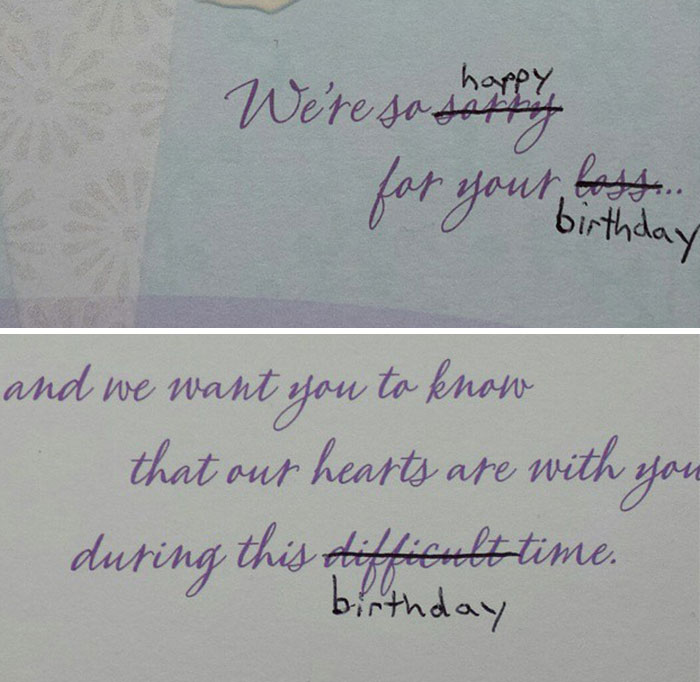 happy
We're so sorry
for your loss...
birthday
and we want you to know
that our hearts are with you
during this difficult time.
birthday